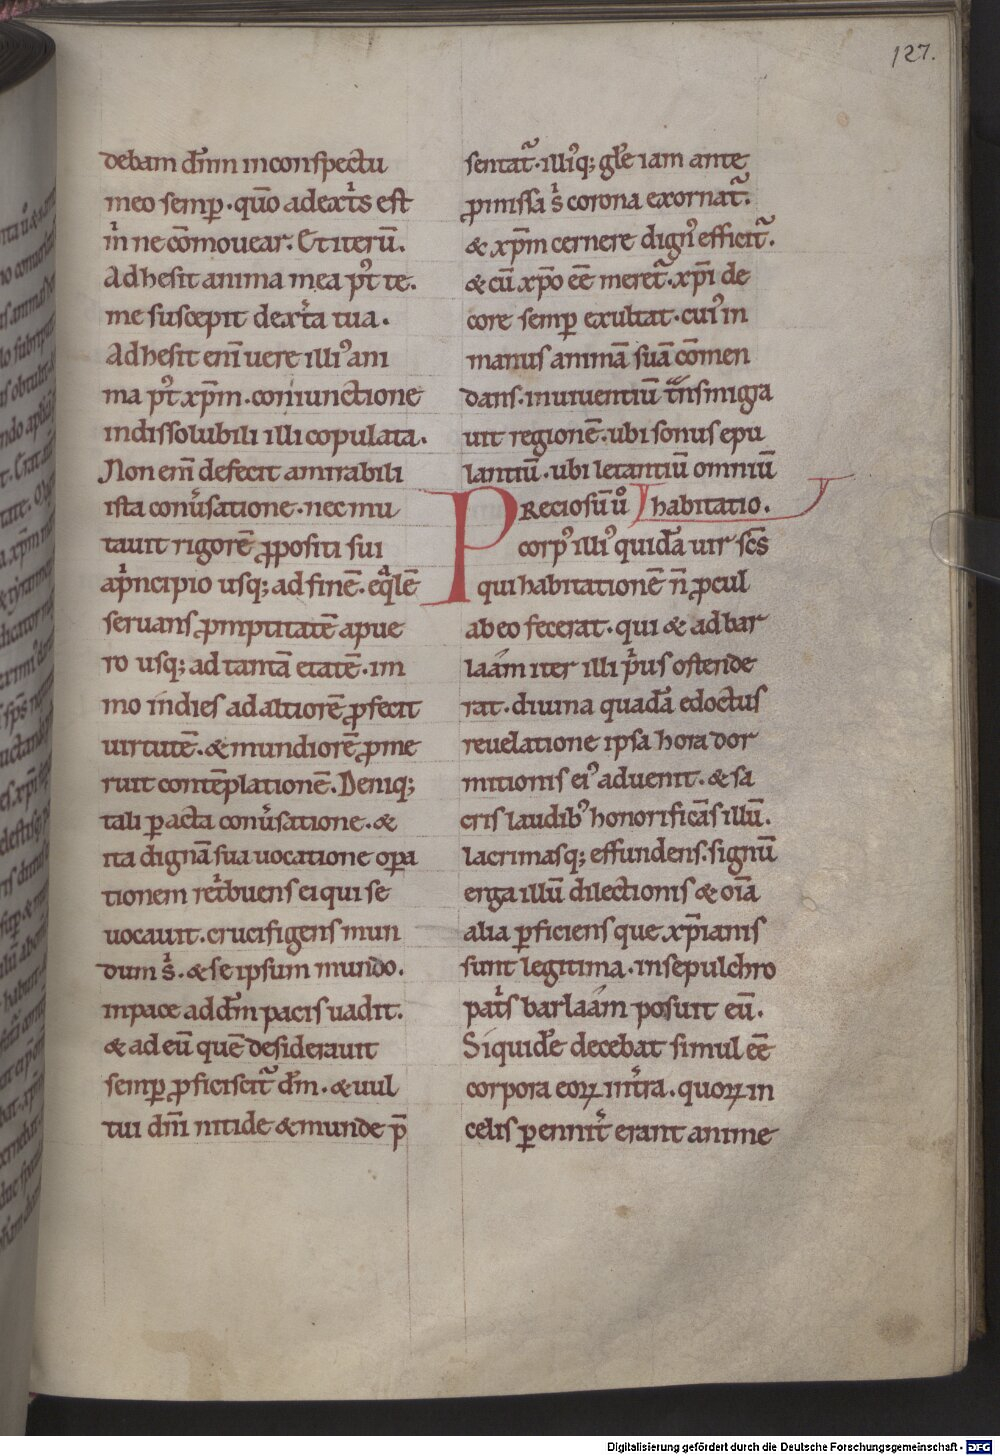 127.
debam dn̄m inconspectu
meo semp̲. quō adextͥs est
m̥ ne cōmouear. Et iterū.
Adhesit anima mea pꝰt te.
me suscepit dextͣa tua.
Adhesit enī uere illiꝰ ani
ma pꝰt xp̄m. coniunctione
indissolubili illi copulata.
Non enī defecit amirabili
ista conuͥsatione. nec mu
tauit rigorē ꝓpositi sui
apͥncipio usq; ad finē. eqͣlē
seruans ꝓmptitatē apue
ro usq; ad tantā etatē. im
mo indies ad altiorē ꝓfecit
uirtutē. & mundiorē ꝓme
ruit contēplationē. Deniq;
tali ꝑacta conuͥsatione. &
ita dignā sua uocatione oꝑa
tionem retͥbuens ei qui se
uocauit. crucifigens mun
dum sͥ. & se ipsum mundo.
inpace ad dm̄ pacis uadit.
& ad eū quē desiderauit
semꝑ ꝓficiscitᷣ dm̄. & uul
tui dn̄i nitide & munde p̄
sentatᷣ. illiꝰq; glͤe iam ante
ꝓmissa sͥ corona exornatᷣ.
& xp̄m cernere dignꝰ efficitᷣ.
& cū xp̄o eē meretᷣ. xp̄i de
core semꝑ exultat. cuiꝰ in
manus animā suā cōmen
dans. inuiuentiū tͣnsmigra
uit regionē. ubi sonus epu
lantiū. ubi letantiū omniū
habitatio.
PRECIOSUͫ uͦ
corpꝰ illiꝰ quidā uir scͣ̄s
qui habitationē n̄ ꝓcul
ab eo fecerat. qui & ad bar
laám iter illi pͥus ostende
rat. diuina quadā edoctus
reuelatione ipsa hora dor
mitionis eiꝰ aduenit. & sa
cris laudibꝰ honorificās illū.
lacrimasq; effundens. signū
erga illū dilectionis & oīa
alia ꝑficiens que xp̄ianis
sunt legitima. insepulchro
patͥs barlaám posuit eū.
Siquidē decebat simul eē
corpora eoꝝ intͣra. quoꝝ in
celis ꝑennitͥ erant anime
Digitalisierung gefördert durch die Deutsche Forschungsgemeinschaft - DFG